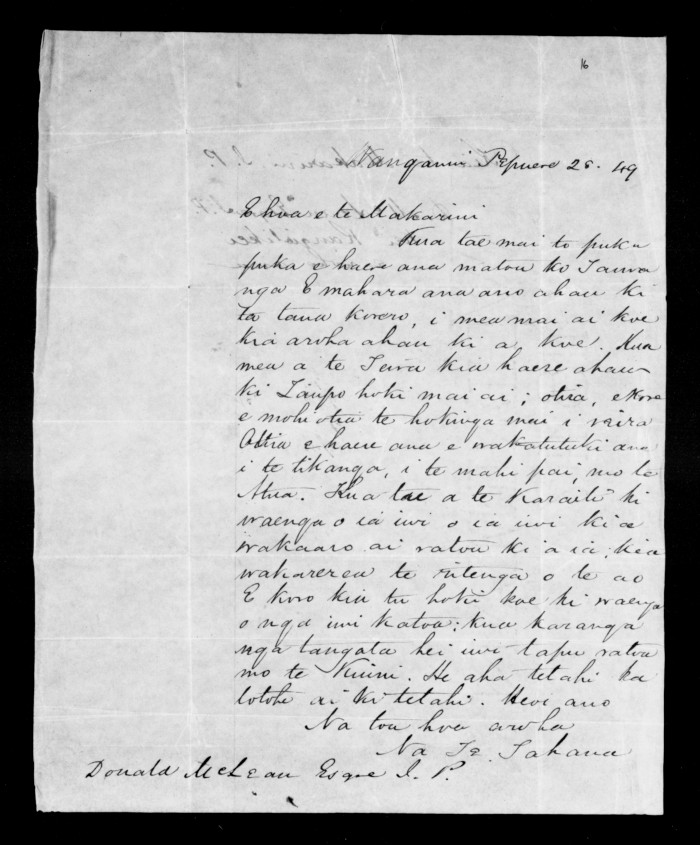 16
Wanganui Pepuere 26. 49
E hoa e te Makarini
Kua tae mai to puka
puka e haere ana matou ko Tauwa
nga E mahara ana ano ahau ki
ta taua korero, i mea mai ai koe
kia aroha ahau ki a koe. Kua
mea a te Teira kia haere ahau
ki Taupo hoki mai ai; otira, e kore
e mohiotia te hokinga mai i reira
Otiia e haere ana e wakatutuki ana
i te tikanga, i te mahi pai, mo te
Atua. Kua tae a te Karaiti ki
waenga o ia iwi o ia iwi kia
wakaaro ai ratou ki a ia; kia
wakarerea te ritenga o te ao
E koro kia tu hoki koe ki waenga
o nga iwi katoa; kua karanga
nga tangata hei iwi tapu ratou
mo te Kuini. He aha tetahi ka
totohe ai ki tetahi. Heoi ano
Na tou hoa aroha
Na Te Tahana
Donald McLean Esqre J. P.